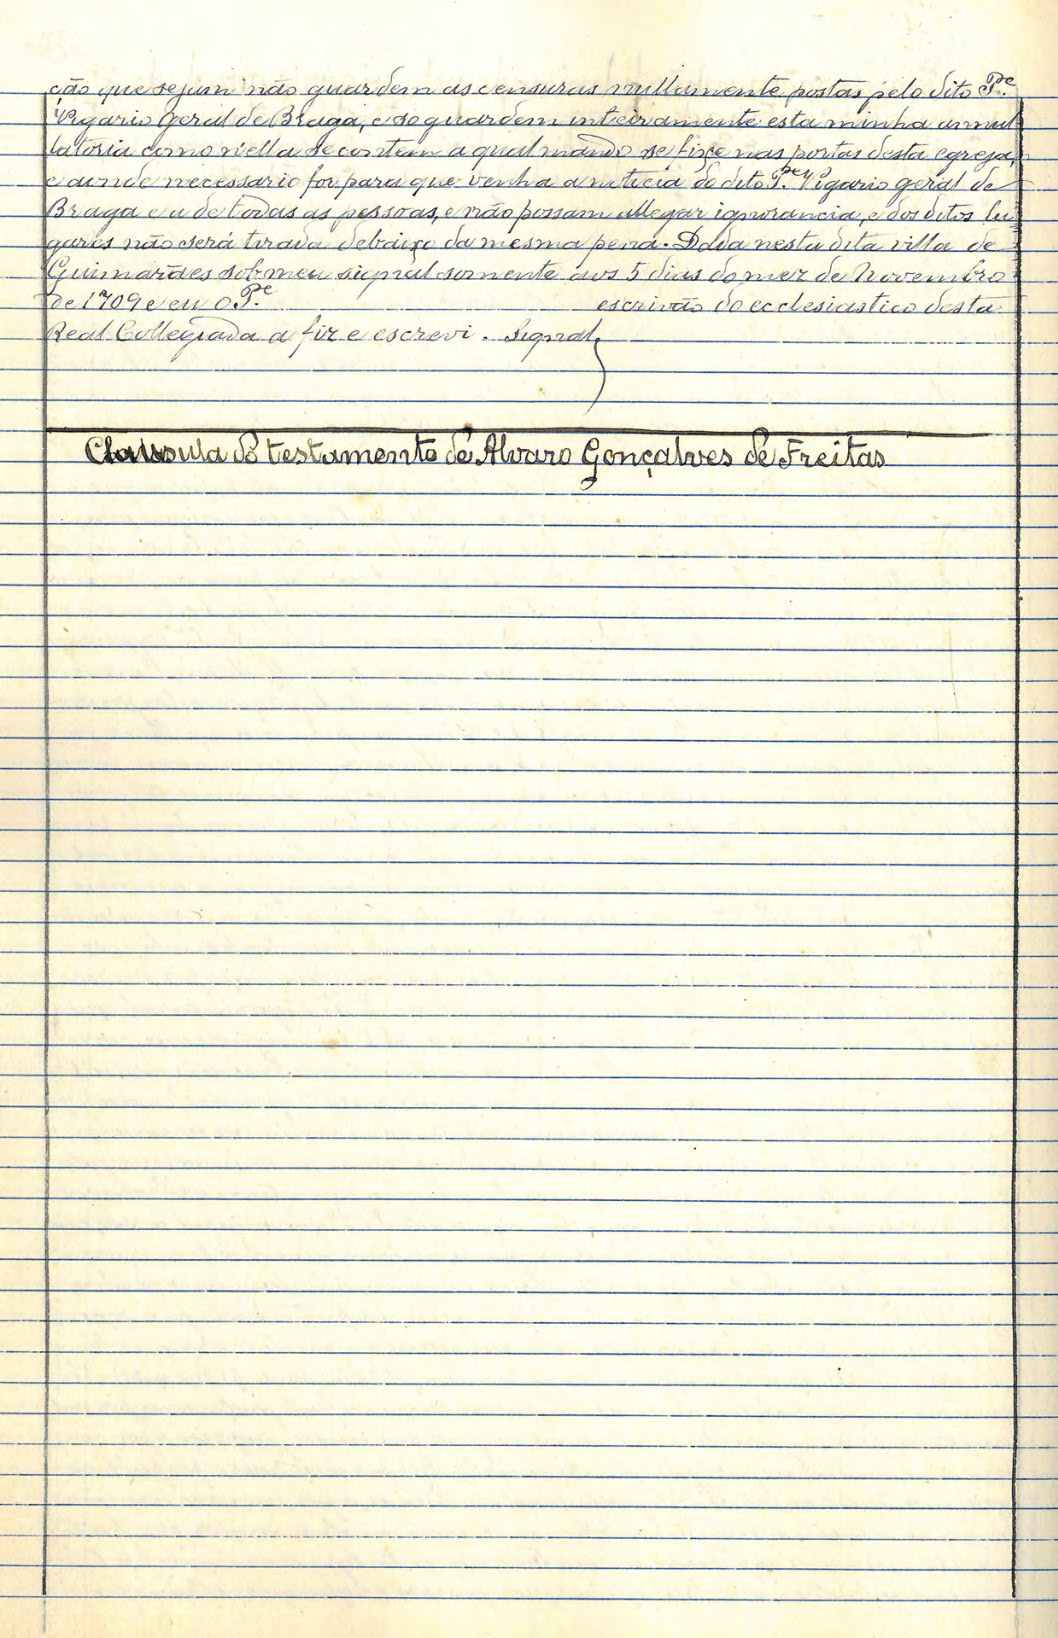 ção que sejam não guardem as censuras nullamente postas pelo dito P.e
Vigario Geral de Braga, e so guardem inteiramente esta minha annul
latoria como n'ella se contem a qual mando se fixe nas portas desta egreja,
e aonde necessario for para que venha a noticia do dito P.e Vigario geral de
Braga e a de todas as pessoas, e não possam allegar ignorancia, e dos ditos lu-
gares não será tirada debaixo da mesma pena. Dada nesta dita villa de
Guimarães sob meu signal somente aos 5 dias do mez de Novembro
de 1709 e eu o P.e escrivão do ecclesiastico desta
Real Collegiada a fiz e escrevi. Signal.
Clausula do testamento de Alvaro Gonçalves de Freitas